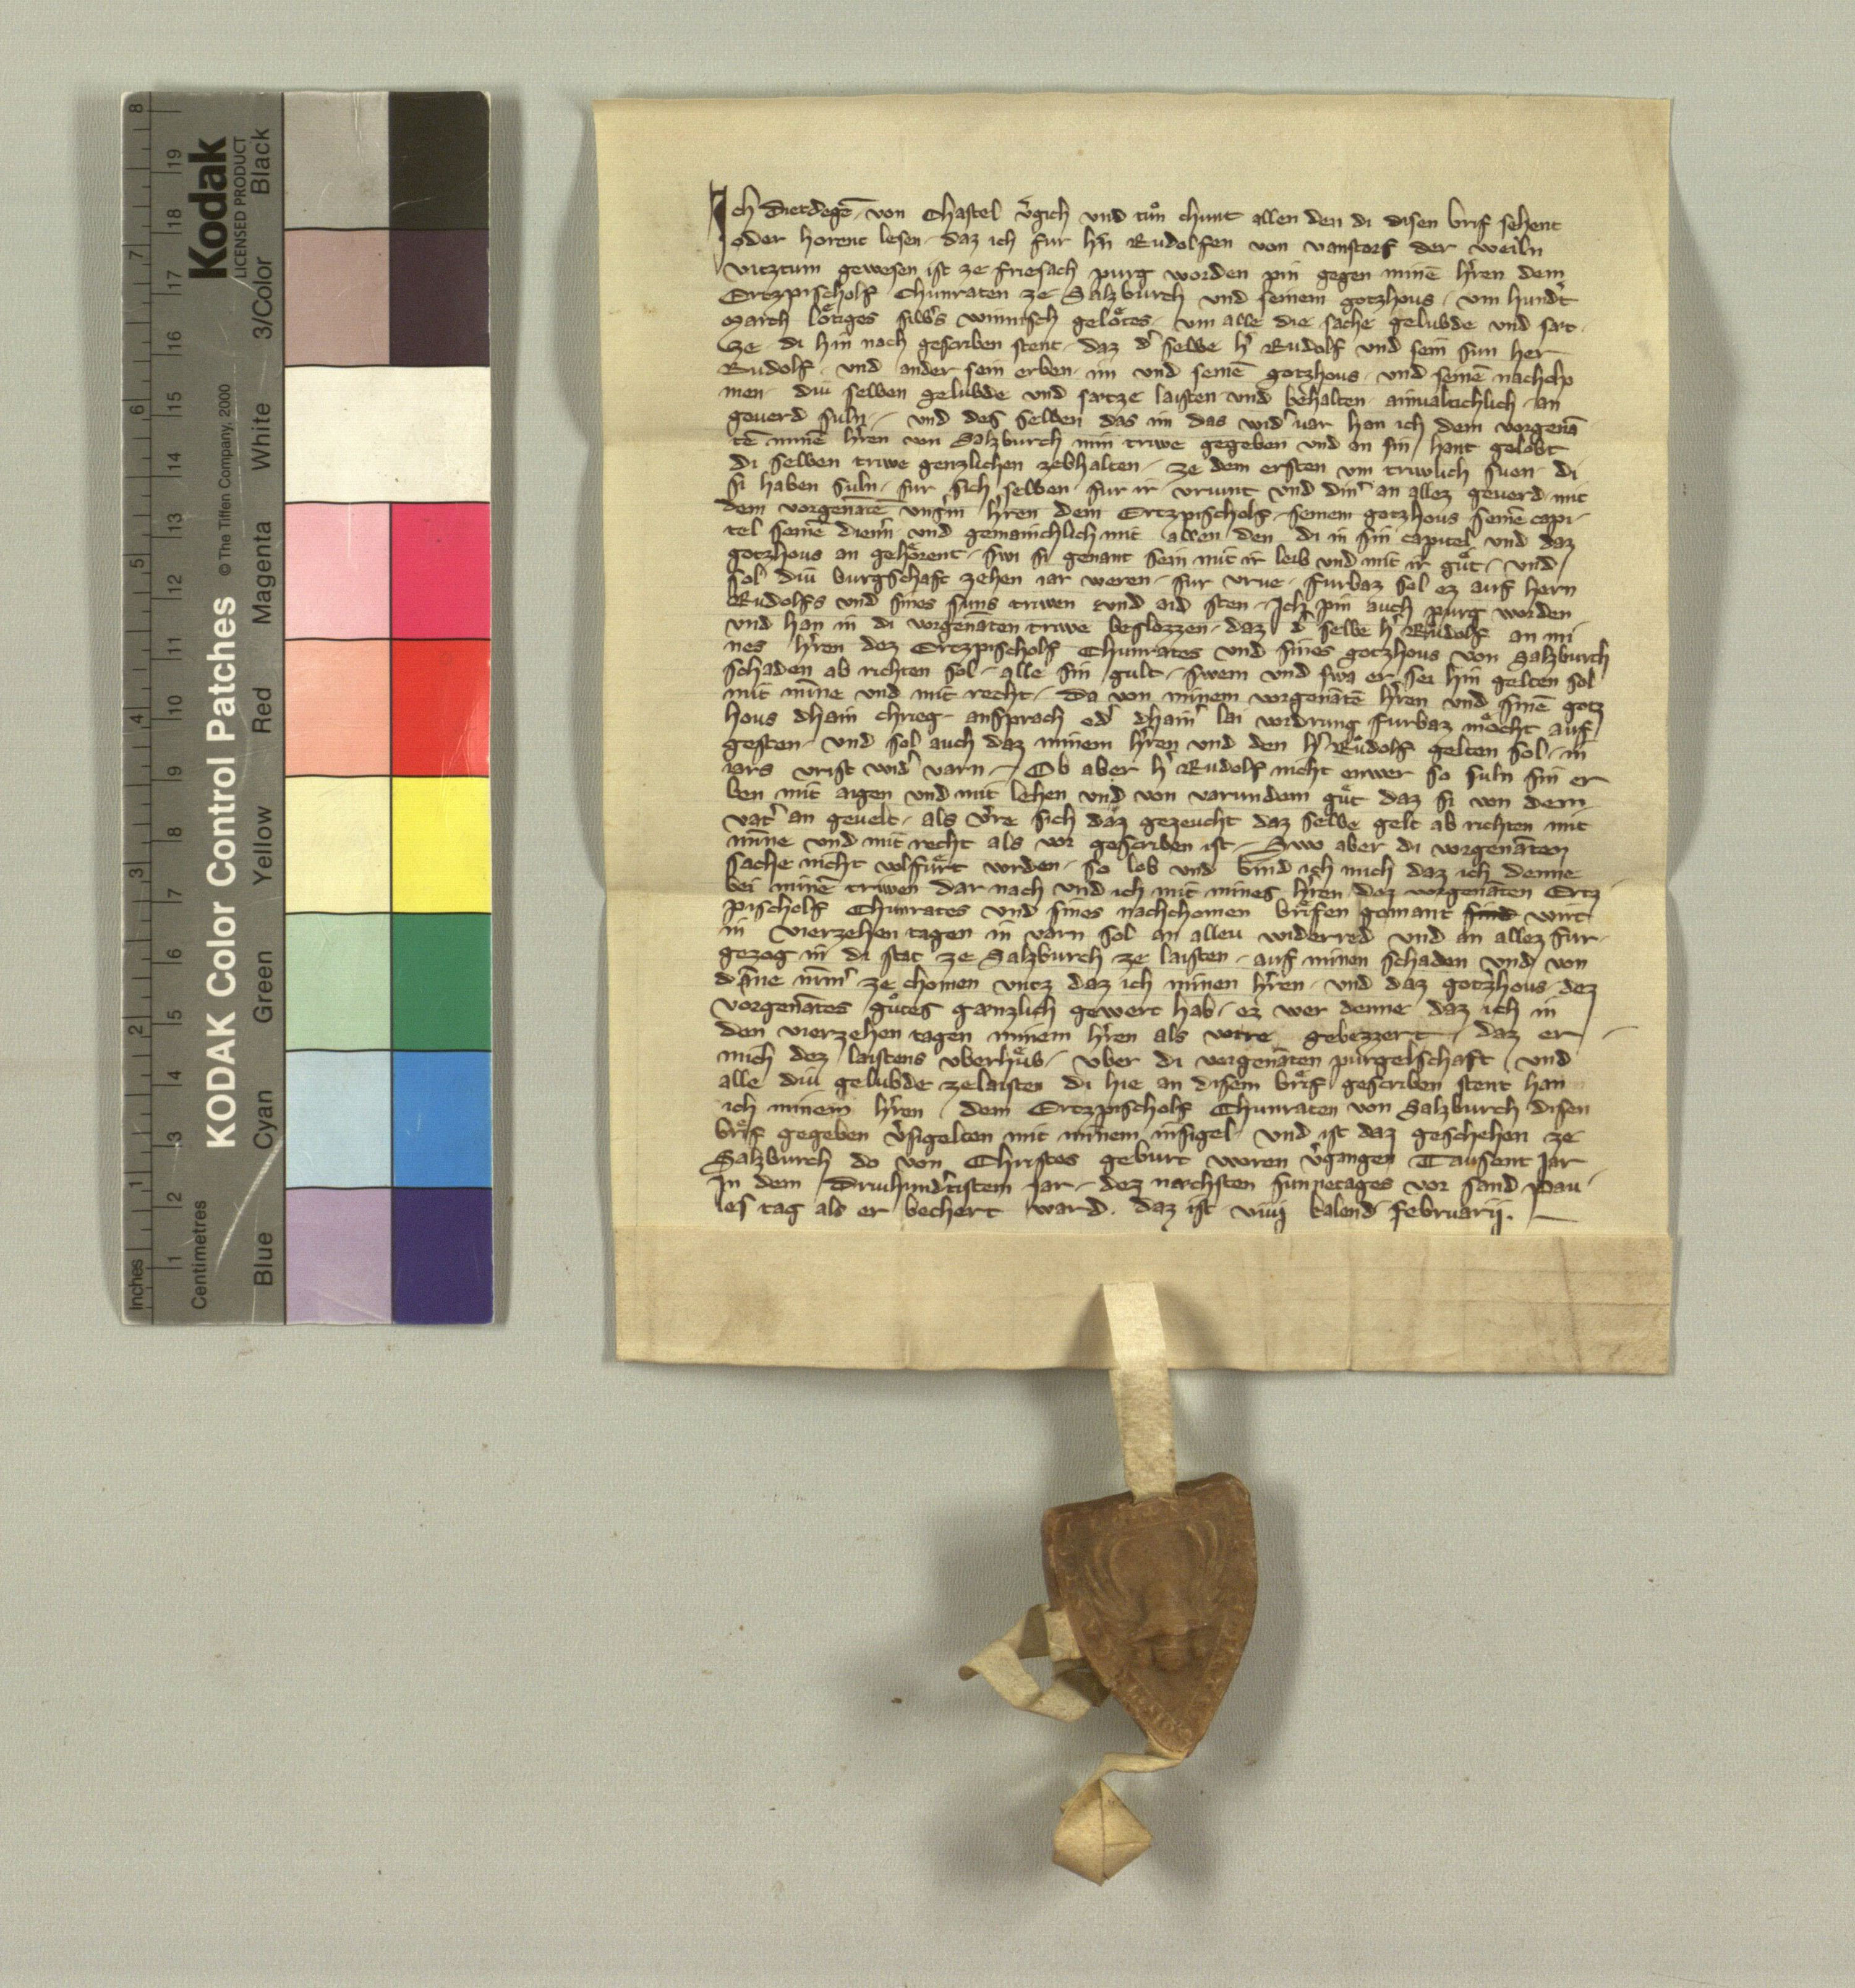 Ich dietdegē von Chastel v̓gich vnd tuͦn chunt allen den di disen brif sehent
oder horent lesen daz ich fur h̓n Rudolfen von vanstorf der weiln
vitztum gewesen ist ze friesach purg worden pin gegen minē h̓ren dem
Ertzpischolf Chunraten ze Salzburch vnd seinem gotzhous vm hund̓t
march loͤtiges silw̓s winnisch geloͤtes vm alle die sache gelubde vnd sæt
ze di hin nach gescriben stent daz d̓ selbe h̓ Rudolf vnd sein sun her
Rudolf vnd ander sein erben im vnd seinē gotzhous vnd seinē nachcho
men diu selben gelubde vnd sætze laisten vnd behalten ainualtichlich an
geuerd suln vnd des selben das im das wid̓uar han ich dem vorgenā
tē minē h̓ren von Salzburch min triwe gegeben vnd an sin hant gelobt
di selben triwe genzlichen zebhalten ze dem ersten vm triwlich suon di
si haben suln fur sich selben fur ir vriunt vnd din̓ an allez geuerd mit
dem vorgenātē vns̓m h̓ren dem Ertzpischolf seinem gotzhous seinē capi
tel seinē dien̓n vnd gemainchlich mit allen den di in sin capitel vnd daz
gotzhous an gehoͤrent swi si genant sein mit ir leib vnd mit ir guͤt vnd
sol diu burgschaft zehen iar weren fur vrue furbaz sol ez auf hern
Rudolfs vnd sines suns triwen vnd aid sten Ich pin auch purg worden
vnd han in di vorgenāten triwe beslozzen daz d̓ selbe h̓ Ruͤdolf an mi
nes h̓ren dez Ertzpischolf Chunrates vnd sines gotzhous von Salzburch
schaden ab richten sol alle sin gult swem vnd swa er sei hin gelten sol
mit minne vnd mit recht da von minem vorgenātē h̓ren vnd sinē gotz
hous dhain chrieg ansprach od̓ dhain̓ lai vordrung furbaz moͤcht auf
gesten vnd sol auch daz minem h̓ren vnd den h̓ Ruͤdolf gelten sol in
iars vrist wid̓uarn Ob aber h̓ Rudolf nicht enwer so suln sin er
ben mit aigen vnd mit lehen vnd von varundem guͤt daz si von dem
vat̓ an geuelt als v̓re sich daz gezeucht daz selbe gelt ab richten mit
minne vnd mit recht als vor gescriben ist Swo aber di vorgenāten
sache nicht volfuͤrt wrden so lob vnd bind ich mich daz ich denne
bei minē triwen dar nach vnd ich mit mines h̓ren dez vorgenāten Ertz
pischolf Chunrates vnd sines nachchomen briͤfen gemant sind wirt
in vierzehen tagen in varn sol an alleu widerred vnd an allez fur
gezog in di stat ze Salzburch ze laisten auf minen schaden vnd von
danne nim̄ ze chomen vntz daz ich minen h̓ren vnd daz gotzhous dez
vorgenātes guͦtes gænzlich gewert hab ez wer denne daz ich in
den vierzehen tagen minem h̓ren als verre gebezzert daz er
mich dez laistens vberhuͤb vber di vorgenāten purgelschaft vnd
alle diu gelubde zelaisten di hie an disem briͤf gescriben stent han
ich minem h̓ren dem Ertzpischolf Chunraten von Salzburch disen
briͤf gegeben v̓sigelten mit minem insigel vnd ist daz geschehen ze
Salzburch do von Christes geburt woren v̓gangen Tausent Jar
In dem Driuhund̓tistem Jar dez næchsten sunnetages vor sand Pau
les tag als er bechert ward. daz ist viiij kalend februarij.
KODAK Color Control Patches
© The Tiffen Company, 2000
Kodak
LICENSED PRODUCT
Centimetres
Inches
1 2 3 4 5 6 7 8 9 10 11 12 13 14 15 16 17 18 19
1 2 3 4 5 6 7 8
Blue Cyan Green Yellow Red Magenta White 3/Color Black